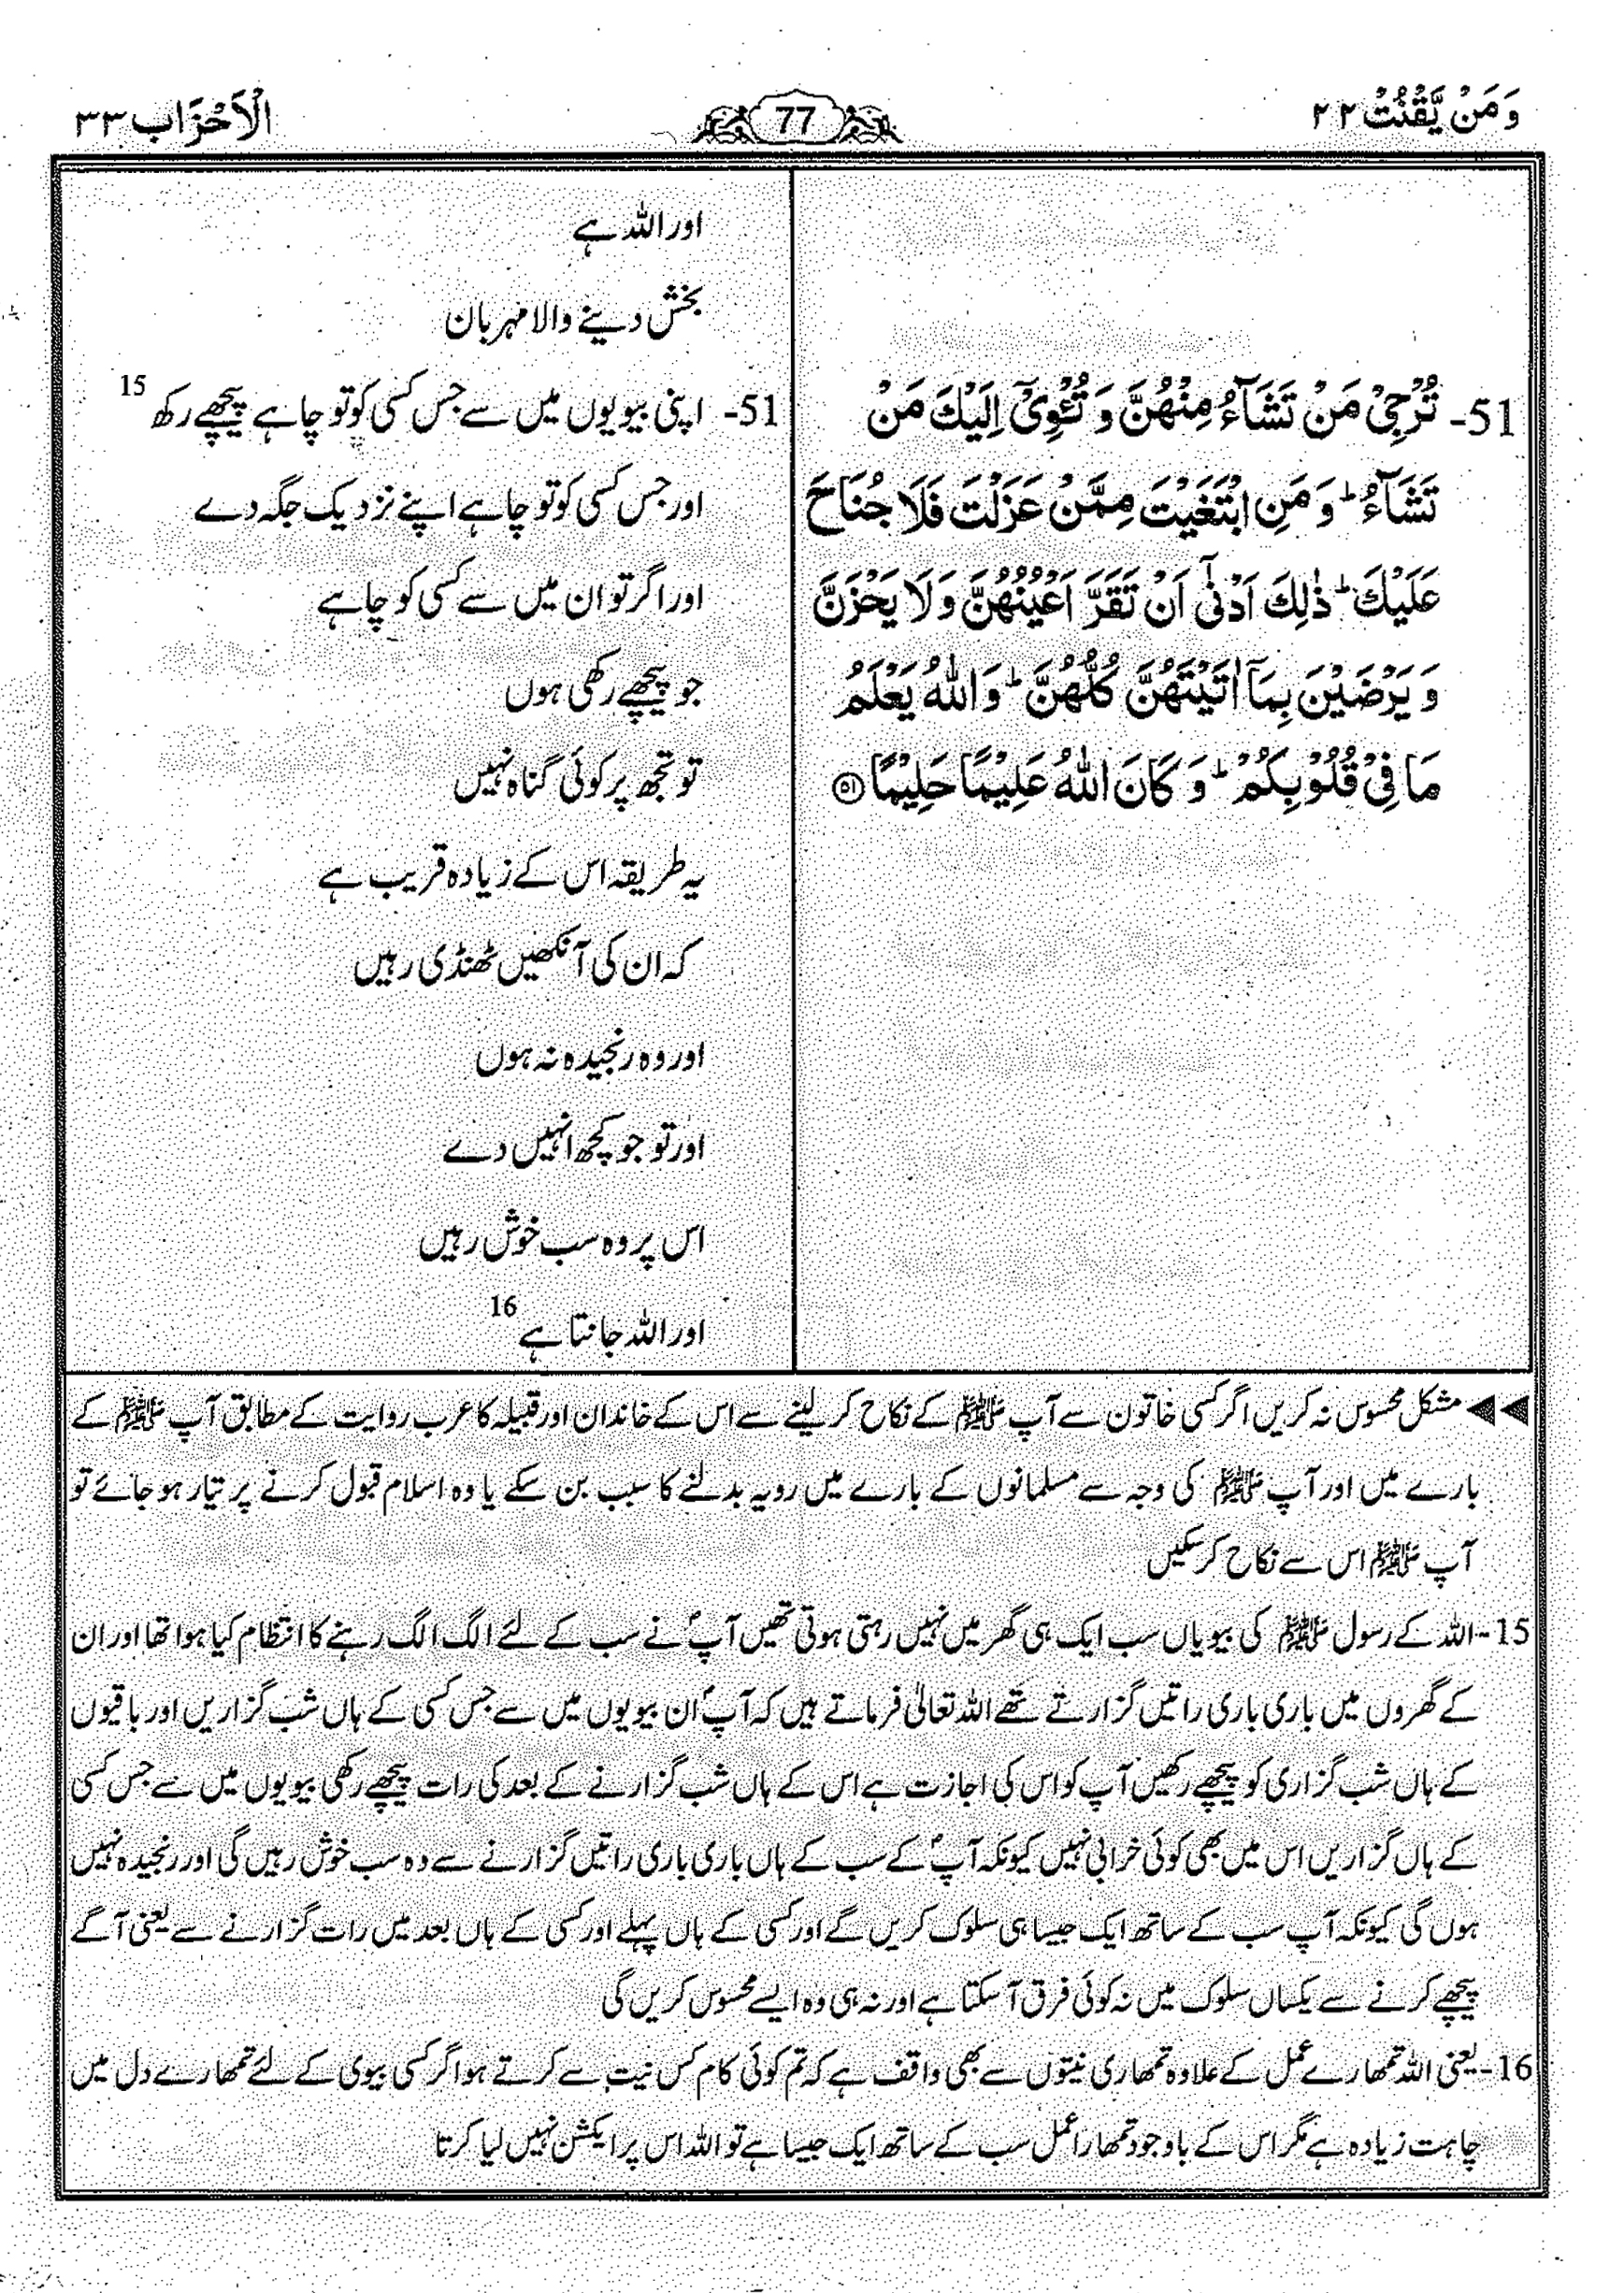 وَمَنْ يَّقْنُتْ ٢٢
77
اَلْاَحْزَاب ٣٣
51- تُرْجِىْ مَنْ تَشَآءُ مِنْهُنَّ وَ تُـْٔوِىْٓ اِلَيْكَ مَنْ
تَشَآءُ ؕ وَ مَنِ ابْتَغَيْتَ مِمَّنْ عَزَلْتَ فَلَا جُنَاحَ
عَلَيْكَ ؕ ذٰلِكَ اَدْنٰٓى اَنْ تَقَرَّ اَعْيُنُهُنَّ وَ لَا يَحْزَنَّ
وَ يَرْضَيْنَ بِمَاۤ اٰتَيْتَهُنَّ كُلُّهُنَّ ؕ وَ اللّٰهُ يَعْلَمُ
مَا فِىْ قُلُوْبِكُمْ ؕ وَ كَانَ اللّٰهُ عَلِيْمًا حَلِيْمًا ۝۵۱
اور اللہ ہے
بخش دینے والا مہربان
51- اپنی بیویوں میں سے جس کسی کو تو چاہے پیچھے رکھ 15
اور جس کسی کو تو چاہے اپنے نزدیک جگہ دے
اور اگر تو ان میں سے کسی کو چاہے
جو پیچھے رکھی ہوں
تو تجھ پر کوئی گناہ نہیں
یہ طریقہ اس کے زیادہ قریب ہے
کہ ان کی آنکھیں ٹھنڈی رہیں
اور وہ رنجیدہ نہ ہوں
اور تو جو کچھ انہیں دے
اس پر وہ سب خوش رہیں
اور اللہ جانتا ہے 16
◀◀ مشکل محسوس نہ کریں اگر کسی خاتون سے آپ ﷺ کے نکاح کر لینے سے اس کے خاندان اور قبیلہ کا عرب روایت کے مطابق آپ ﷺ کے
بارے میں اور آپ ﷺ کی وجہ سے مسلمانوں کے بارے میں رویہ بدلنے کا سبب بن سکے یا وہ اسلام قبول کرنے پر تیار ہو جائے تو
آپ ﷺ اس سے نکاح کر سکیں
15- اللہ کے رسول ﷺ کی بیویاں سب ایک ہی گھر میں نہیں رہتی ہوتی تھیں آپؐ نے سب کے لئے الگ الگ رہنے کا انتظام کیا ہوا تھا اور ان
کے گھروں میں باری باری راتیں گزارتے تھے اللہ تعالیٰ فرماتے ہیں کہ آپؐ ان بیویوں میں سے جس کسی کے ہاں شب گزاریں اور باقیوں
کے ہاں شب گزاری کو پیچھے رکھیں آپ کو اس کی اجازت ہے اس کے ہاں شب گزارنے کے بعد کی رات پیچھے رکھی بیویوں میں سے جس کسی
کے ہاں گزاریں اس میں بھی کوئی خرابی نہیں کیونکہ آپؐ کے سب کے ہاں باری باری راتیں گزارنے سے وہ سب خوش رہیں گی اور رنجیدہ نہیں
ہوں گی کیونکہ آپ سب کے ساتھ ایک جیسا ہی سلوک کریں گے اور کسی کے ہاں پہلے اور کسی کے ہاں بعد میں رات گزارنے سے یعنی آگے
پیچھے کرنے سے یکساں سلوک میں نہ کوئی فرق آ سکتا ہے اور نہ ہی وہ ایسے محسوس کریں گی
16- یعنی اللہ تمھارے عمل کے علاوہ تمھاری نیتوں سے بھی واقف ہے کہ تم کوئی کام کس نیت سے کرتے ہو اگر کسی بیوی کے لئے تمھارے دل میں
چاہت زیادہ ہے مگر اس کے باوجود تمھارا عمل سب کے ساتھ ایک جیسا ہے تو اللہ اس پر ایکشن نہیں لیا کرتا